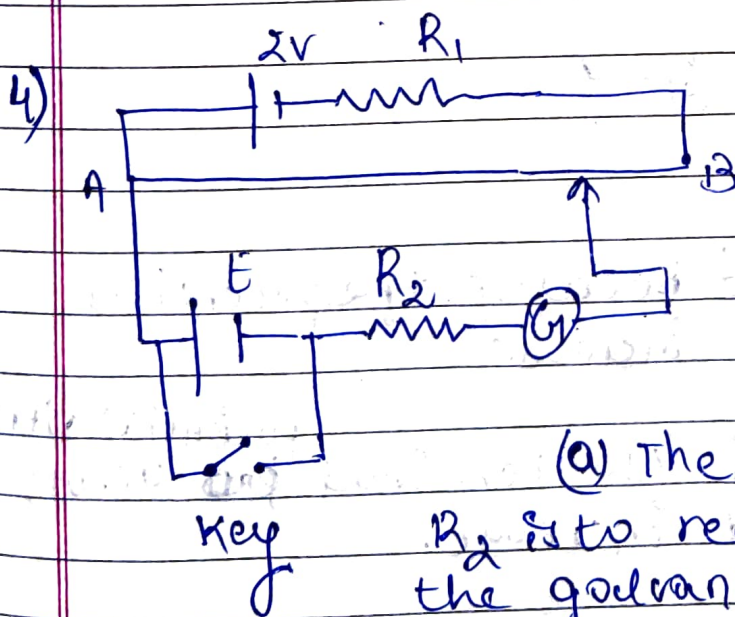 4)
2V R₁
A B
E R₂
G
(a) The
Key R₂ is to re
the galvan